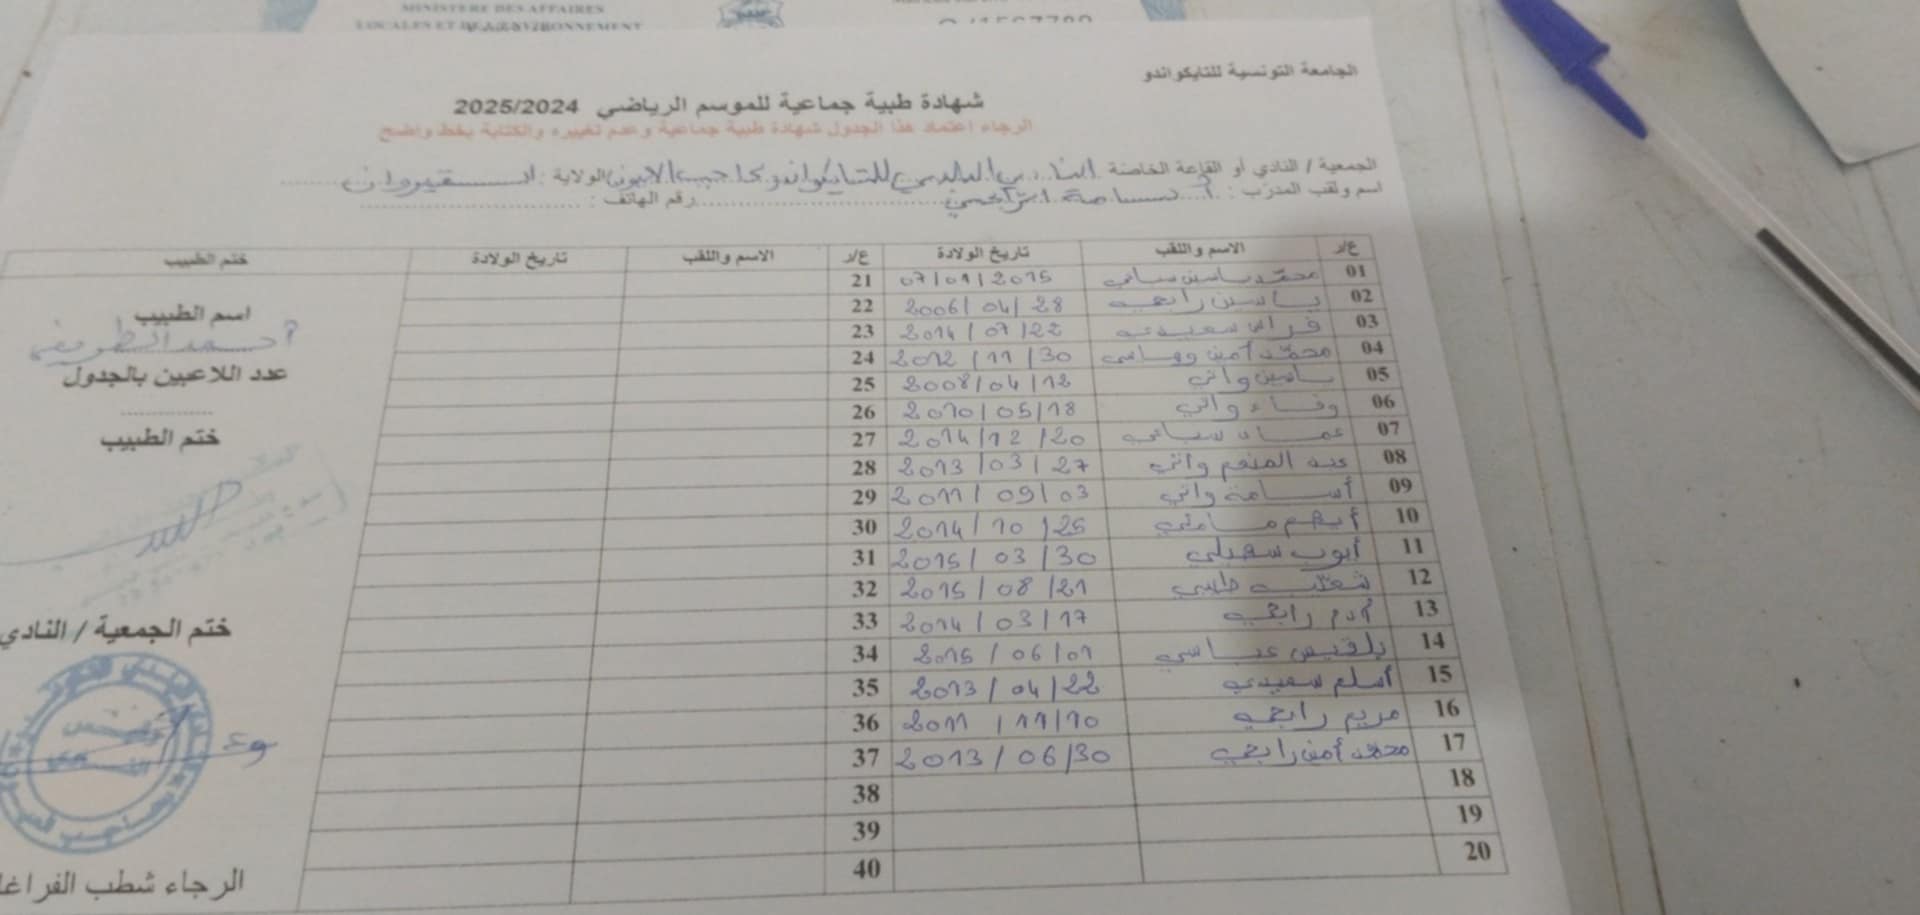 MINISTERE DES AFFAIRES
LOCALES ET DE L'ENVIRONNEMENT
الجامعة التونسية للتايكواندو
شهادة طبية جماعية للموسم الرياضي 2025/2024
الرجاء اعتماد هذا الجدول شهادة طبية جماعية وعدم تغييره والكتابة بخط واضح
الجمعية / النادي أو القاعة الخاصة النادي البلدي للتايكواندو بحاجب العيون الولاية : القيروان
اسم ولقب المدرب : أسامة رقم الهاتف :
ع/ر الاسم واللقب تاريخ الولادة ع/ر الاسم واللقب تاريخ الولادة ختم الطبيب
01 محمد ياسين 07/01/2015 21
02 ياسين رابحي 2006/04/28 22
03 فراس سعيدي 2014/07/22 23
04 محمد أمين 2012/11/30 24
05 ياسين واني 2008/04/12 25
06 وفاء واني 2010/05/18 26
07 عماد 2014/12/20 27
08 عبد المنعم واني 2013/03/27 28
09 أسامة واني 2011/09/03 29
10 أيهم 2014/10/25 30
11 أيوب سهيلي 2015/03/30 31
12 شعيب 2015/08/21 32
13 آدم رابحي 2014/03/17 33
14 بلقيس عباسي 2015/06/01 34
15 أسلم سعيدي 2013/04/22 35
16 مريم رابحي 2011/11/10 36
17 محمد أمين رابحي 2013/06/30 37
18 38
19 39
20 40
اسم الطبيب
أحمد
عدد اللاعبين بالجدول
ختم الطبيب
ختم الجمعية / النادي
الرجاء شطب